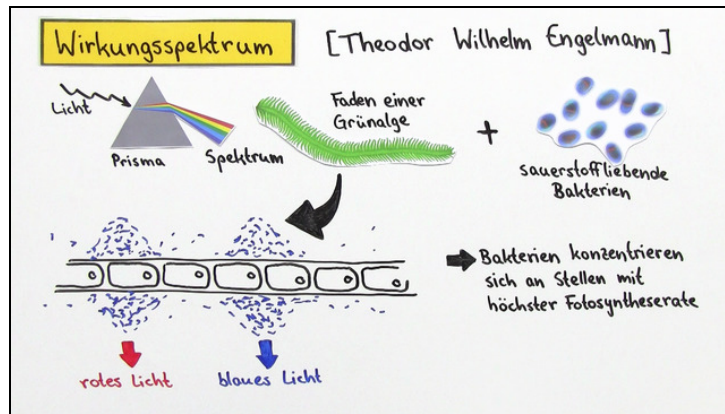 Wirkungsspektrum [Theodor Wilhelm Engelmann]
Licht
Prisma
Spektrum
Faden einer
Grünalge
+
sauerstoffliebende
Bakterien
Bakterien konzentrieren
sich an Stellen mit
höchster Fotosyntheserate
rotes Licht
blaues Licht